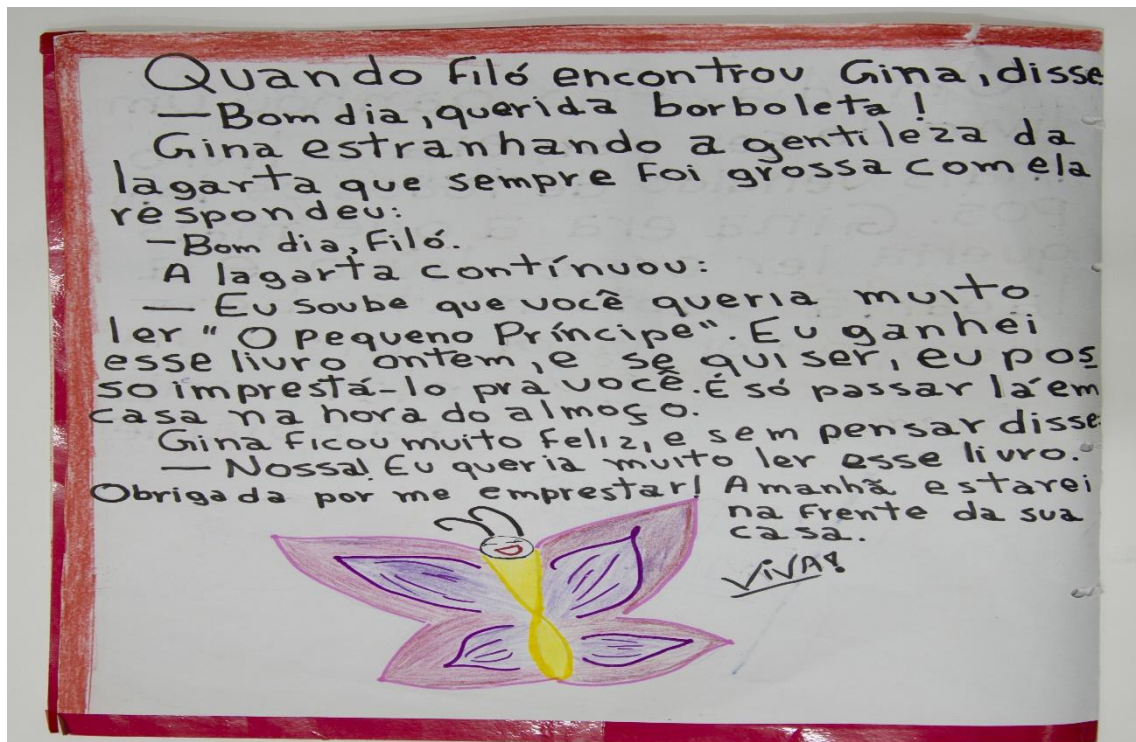 Quando Filó encontrou Gina, disse
— Bom dia, querida borboleta!
Gina estranhando a gentileza da
lagarta que sempre foi grossa com ela
respondeu:
— Bom dia, Filó.
A lagarta contínuou:
— Eu soube que você queria muito
ler "O Pequeno Príncipe". Eu ganhei
esse livro ontem, e se quiser, eu pos
so imprestá-lo pra você. É só passar lá em
casa na hora do almoço.
Gina ficou muito feliz, e sem pensar disse:
— Nossa! Eu queria muito ler esse livro.
Obrigada por me emprestar! Amanhã estarei
na frente da sua
casa.
ViVA!